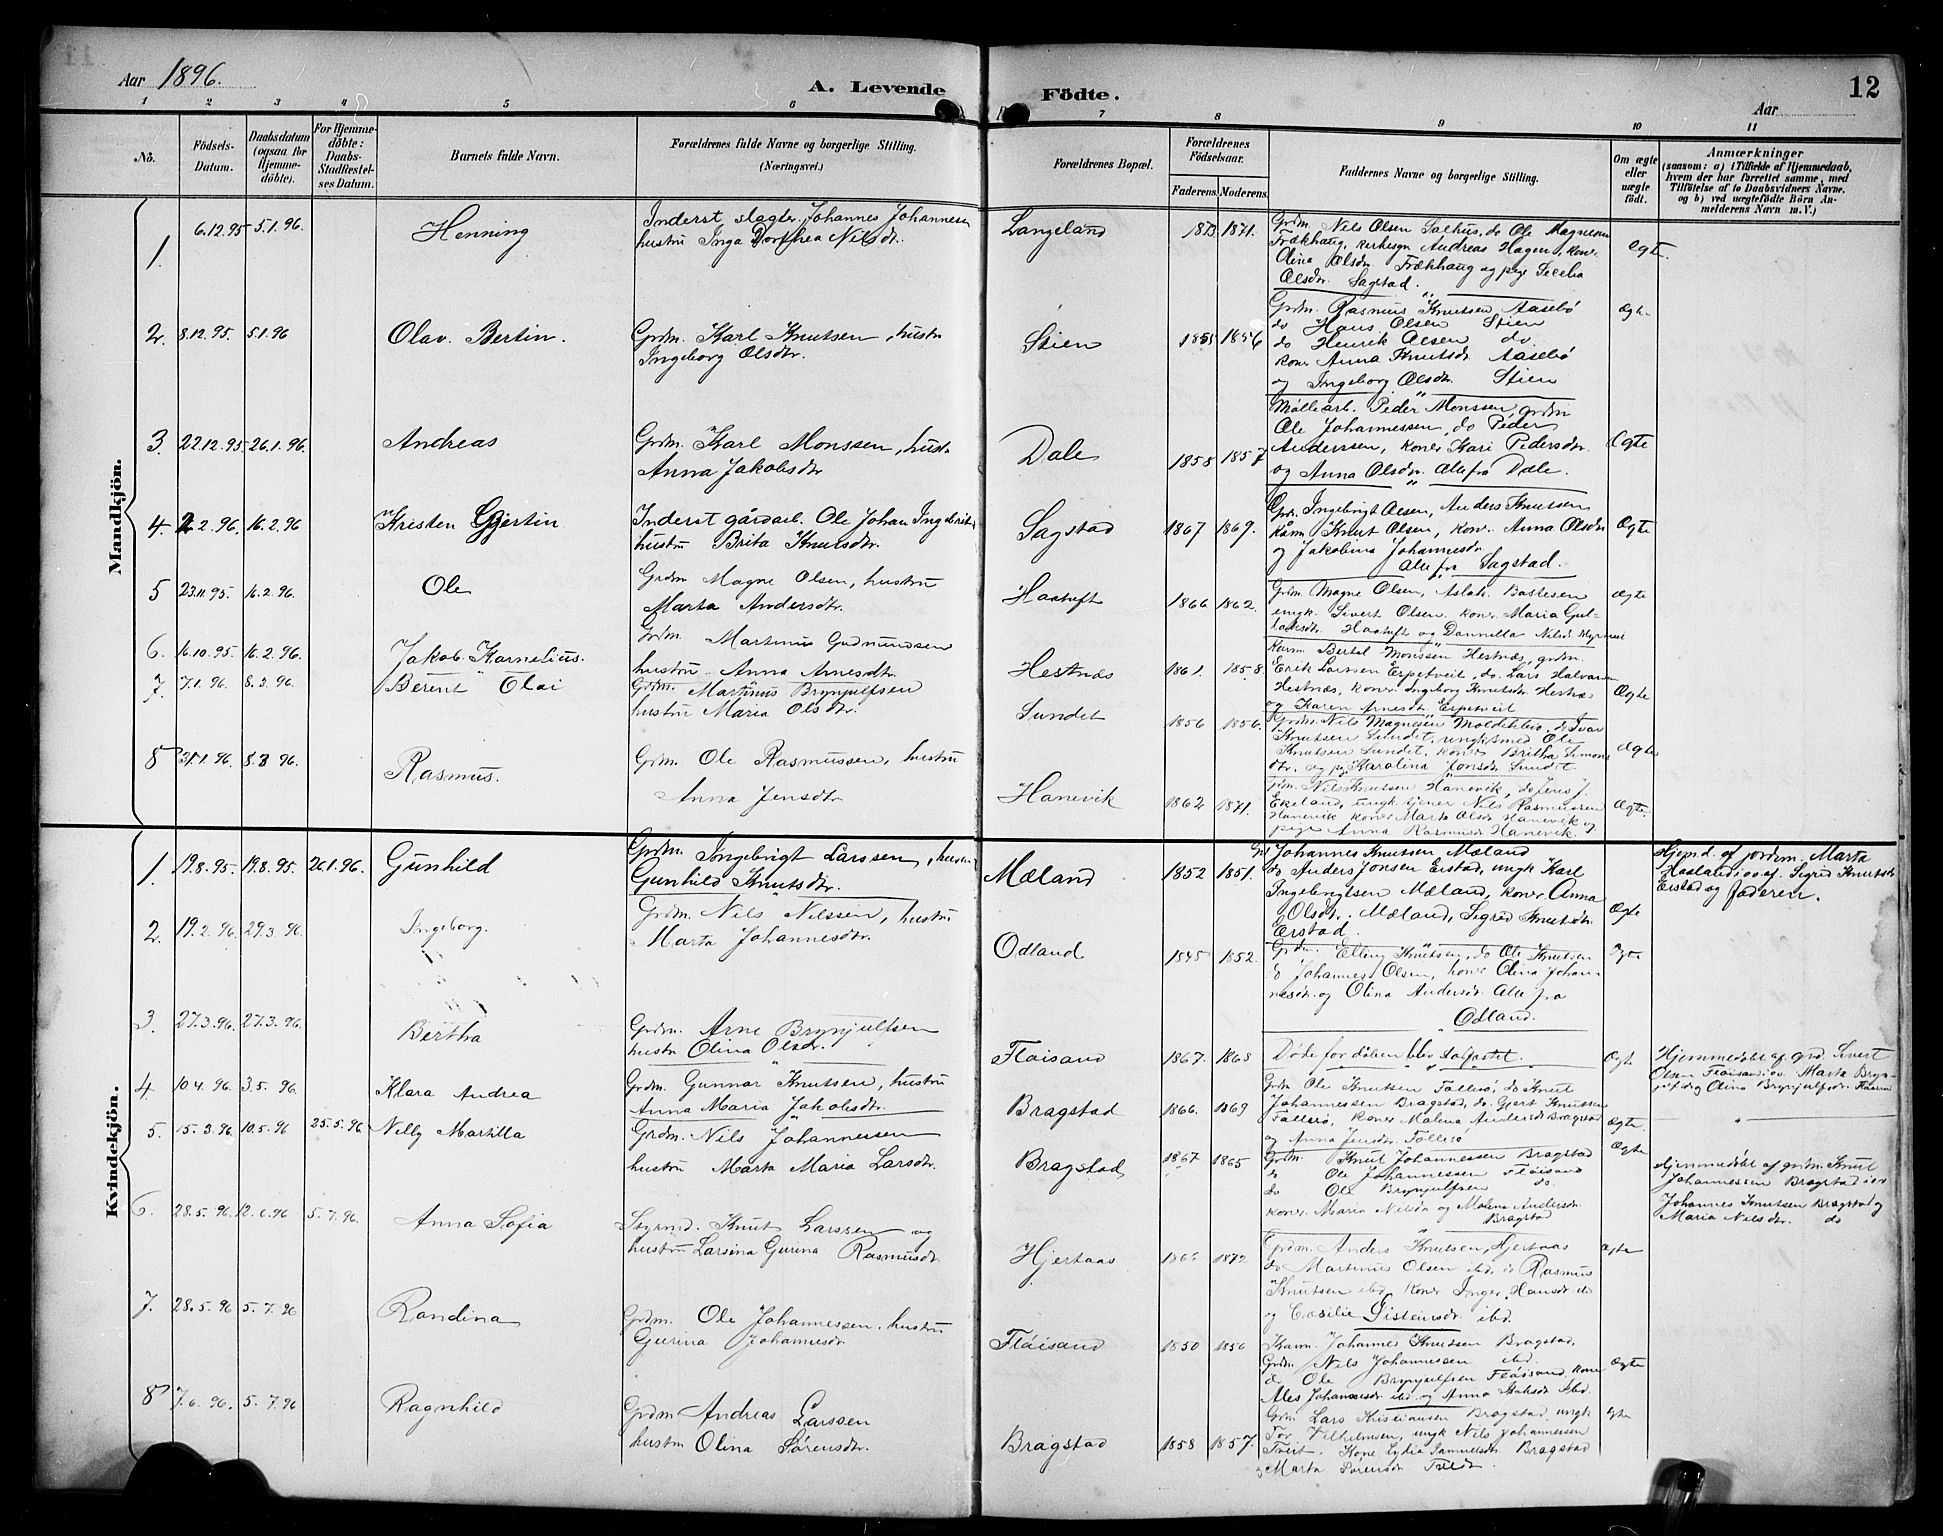 Aar 1896.
A. Levende Födte.
Aar
12
1 2 3 4 5 6 7 8 9 10 11
No.
Födsels-Datum.
Daabsdatum (ogsaa for Hjemmedöbte).
For Hjemmedöbte: Daabs-Stadfæstelses Datum.
Barnets fulde Navn.
Forældrenes fulde Navne og borgerlige Stilling. (Næringsvei.)
Forældrenes Bopæl.
Forældrenes Födselsaar.
Faderens. Moderens.
Faddernes Navne og borgerlige Stilling.
Om ægte eller uægte födt.
Anmærkninger
(saasom: a) i Tilfælde af Hjemmedaab, hvem der har forrettet samme, med Tilföielse af to Daabsvidners Navne, og b) ved uægtefödte Börn Anmelderens Navn m. V.)
Mandkjön.
1. 6.12.95 5.1.96. Henning
Inderst slagter Johannes Johannesen
hustru Inga Dorthea Nilsdtr.
Langeland 1873 1871.
Grdm. Nils Olsen Salhus, do Ole Magnesen
Frækhaug, kirkesgn Andreas Hagen, kone
Olina Olsdtr. Frækhaug og pige Secelia
Olsdtr. Sagstad.
Ægte.
2. 8.12.95. 5.1.96 Olav Bertin.
Grdm. Karl Knutsen, hustru
Ingeborg Olsdtr.
Stien 1855 1856
Grdm. Rasmus Knutsen Aasebø
do Hans Olsen Stien
do Henrik Olsen do.
kone Anna Knutsdtr Aasebø
og Ingeborg Olsdtr. Stien
3. 22.12.95 26.1.96. Andreas
Grdm. Karl Monssen, hustr.
Anna Jakobsdtr
Dale 1858 1857
Møllearb. Peder Monssen, grdm
Ole Johannessen, do Peder
Anderssen, koner Kari Pedersdtr.
og Anna Olsdtr. Alle fra Dale.
Ægte
4. 2.2.96. 16.2.96 Kristen Gjertin
Inderst gårdarb. Ole Johan Ingebritsen
hustru Brita Knutsdtr.
Sagstad 1867 1869.
Grdm. Ingebrigt Olsen, Anders Knutsen
Kårm Knut Olsen, kone Anna Olsdtr
og Jakobina Johannesdtr
Alle fra Sagstad.
Ægte
5 23.11.95. 16.2.96. Ole
Grdm Magne Olsen, hustru
Marta Andersdtr.
Haatuft 1866 1862.
Grdm. Magne Olsen, Aslak Bastesen
ungk. Sivert Olsen kone Maria Gul-
laksdtr. Haatuft og Dannella Nilsd
Ægte
6. 16.10.95. 16.2.96. Jakob Kornelius.
Grdm. Martinus Gudmundsen
hustru Anna Arnesdtr.
Hestnæs 1861. 1858.
Kaarm Bertel Monssen Hestnæs, grdm.
Erik Larssen Espetveit, do. Lars Halvarsen
Hestnæs, koner Ingeborg Knutsdtr Hestnæs
og Karen Arnesdtr. Espetveit
Ægte
7. 7.1.96. 8.3.96. Berent Olai
Grdm. Martinus Brynjulfsen
hustru Maria Olsdtr.
Sundet 1856 1856.
Grdm. Nils Magnesen Moldekleiv, do Ivar
Knutsen Sundet, ungksmed Ole
Knutsen Sundet. koner Britha Simons
dtr. og pige Karolina Jonsdtr. Sundet.
Ægte
8 31.1.96. 8.3.96. Rasmus.
Grdm. Ole Rasmussen, hustru
Anna Jensdtr.
Hanevik 1862 1871.
grdm. Nils Knutsen Hanevik, do Jens J.
Ekeland, ungk tjener Nils Rasmussen
Hanevik koner Marta Olsdtr Hanevik og
pige Anna Rasmusdtr Hanevik.
Ægte.
Kvindekjön.
1. 19.8.95. 19.8.95 26.1.96. Gunhild
Grdm. Ingebrigt Larssen, hustru
Gunhild Knutsdtr.
Mæland 1852 1851.
Johannes Knutsen Mæland
do Anders Jonsen Eistad, ungk Karl
Ingebrigtsen Mæland, koner Anna
Olsdtr. Mæland, Sigrid Knutsdtr.
Eistad.
Ægte
Hjemd. af jordem. Marta
Haaland i ov. af. Sigrid Knutsdtr
Eistad og Faderen.
2. 19.2.96. 29.3.96. Ingeborg.
Grdm. Nils Nilssen, hustru
Marta Johannesdtr.
Odland 1845 1852.
Grdm. Elling Knutsen, do Ole Knutsen
do Johannes Olsen, koner Olina Johan-
nesdtr. og Olina Andersdtr Alle fra
Odland.
Ægte
3. 27.3.96. 27.3.96. Bertha
Grdm. Arne Brynjulfsen
hustr Olina Olsdr.
Fløisand 1867. 1868
Døde før dåben blev stadfæstet.
Ægte
Hjemmedøbt af grd. Sivert
Olsen Fløisand i ov. Marta Bryn-
julfd. og Olina Brynjulfsdtr.
4 10.4.96. 3.5.96. Klara Andrea
Grdm. Gunnar Knutsen, hustru
Anna Maria Jakobsdtr.
Bragstad 1866. 1869
Grdm Ole Knutsen Fallesø, do Knut
Johannessen Bragstad, do. Gjert Knutsen
Fallesø, koner Malena Andersdtr Bragstad
og Anna Jensdtr. Follesø
Ægte
5. 15.3.96 10.5.96 25.5.96 Nelly Martilla
Grdm. Nils Johannessen
hustru Marta Maria Larsdtr.
Bragstad 1867. 1865
Grdm. Knut Johannessen Bragstad
do Ole Johannessen Fløisand
do Ole Brynjulfsen do.
koner Maria Nilsdtr og Malena Andersdtr.
Bragstad
Ægte
Hjemmedøbt af grdm. Knut
Johannessen Bragstad i ov
Johannes Knutsen Bragstad og
Maria Nilsdtr. do
6. 28.5.96 12.6.96 5.7.96. Anna Sofia
Styrmd. Knut Larssen og
hustru Larsina Gurina Rasmusdtr.
Hjertaas 1872
Grdm. Anders Knutsen, Hjertaas
do Martinus Olsen ibd. do Rasmus
Knutsen ibd. kone Inger Hansdtr do
og Cæsilie Sisteinsdtr ibd.
Ægte
7. 28.5.96 5.7.96 Randina
Grdm. Ole Johannessen. hustru
Gurina Johannesdtr.
Fløisand 1850 1856
Kaarm. Johannes Knutsen Bragstad,
Grdm. Nils Johannessen ibd.
do Ole Brynjulfsen Fløisand, kone
Johannesdtr ibd. og Anna ibd.
Ægte
8 7.6.96. 5.7.96 Ragnhild
Grdm Andreas Larssen
hustru Olina Sørensdtr.
Bragstad 1858 1857.
Grdm Lars Kristiansen Bragstad, ungk
Tor Vilhelmsen, ungk Nils Johannessen
Tveit. Kone Lydia Samuelsdtr Bragstad
og Marta Sørensdtr Tveit.
Ægte